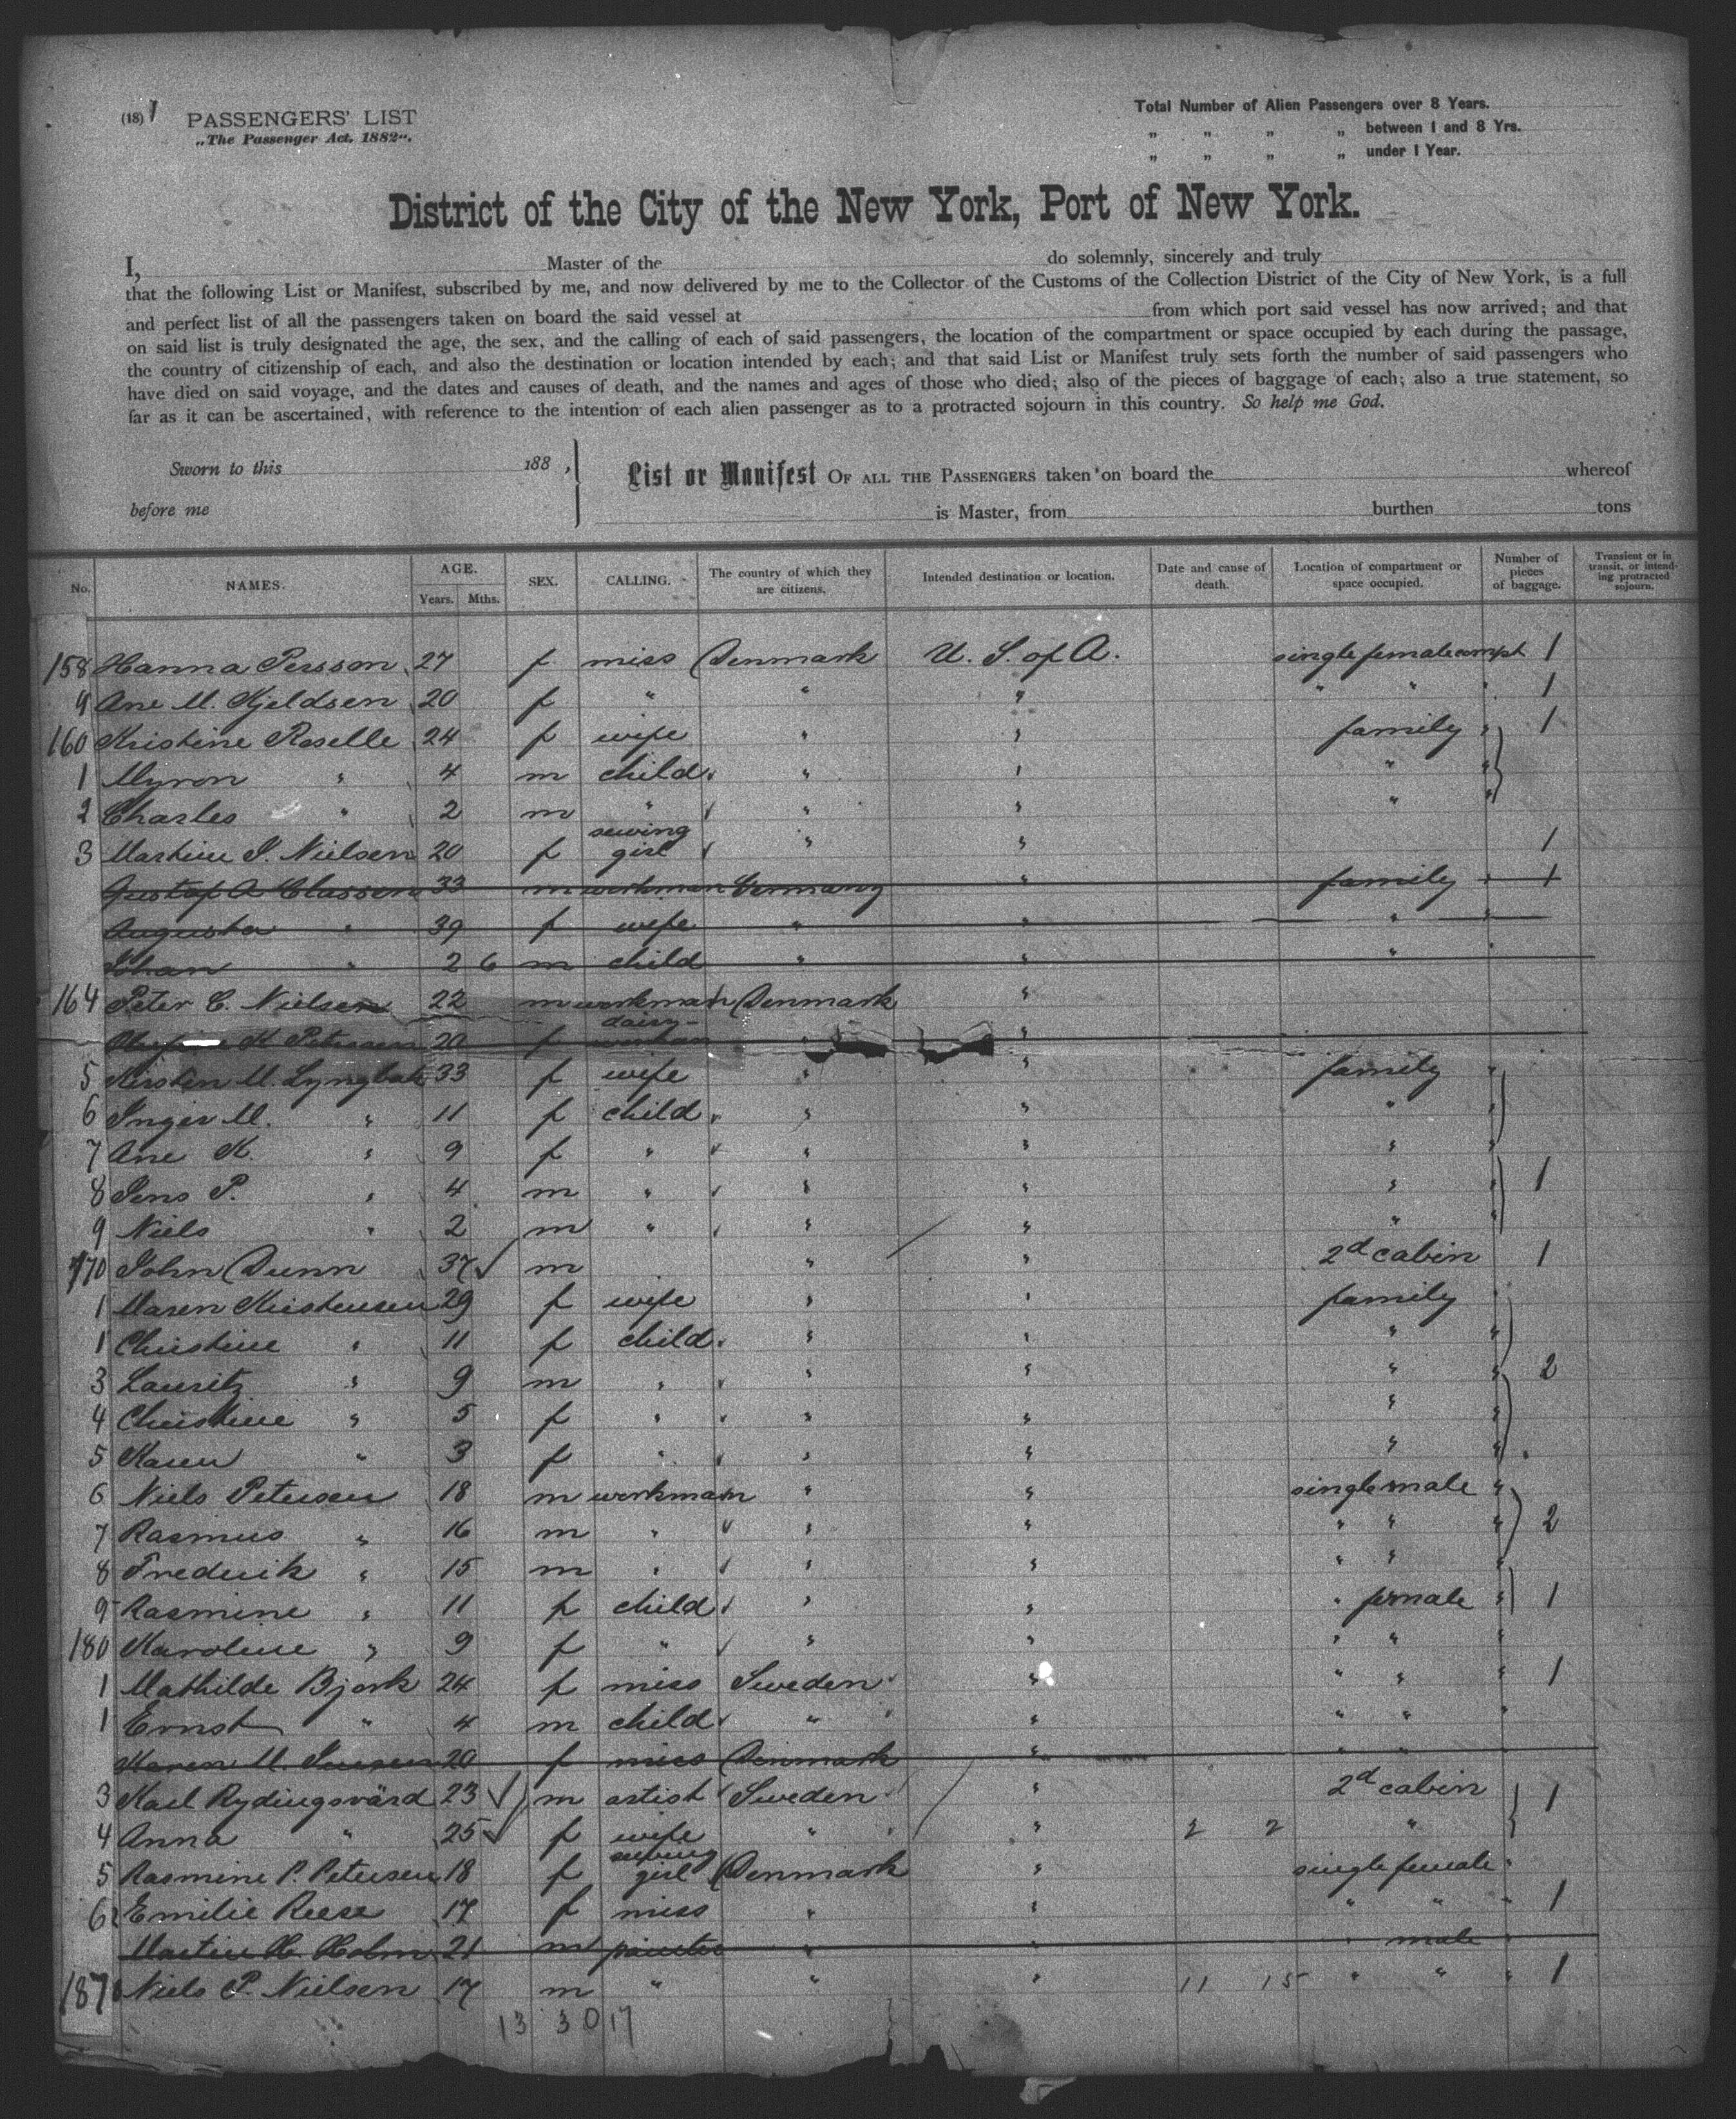 (18) 1 PASSENGERS' LIST
„The Passenger Act. 1882“.
Total Number of Alien Passengers over 8 Years.
„ „ „ „ between 1 and 8 Yrs.
„ „ „ „ under 1 Year.
District of the City of the New York, Port of New York.
I, Master of the do solemnly, sincerely and truly
that the following List or Manifest, subscribed by me, and now delivered by me to the Collector of the Customs of the Collection District of the City of New York, is a full
and perfect list of all the passengers taken on board the said vessel at from which port said vessel has now arrived; and that
on said list is truly designated the age, the sex, and the calling of each of said passengers, the location of the compartment or space occupied by each during the passage,
the country of citizenship of each, and also the destination or location intended by each; and that said List or Manifest truly sets forth the number of said passengers who
have died on said voyage, and the dates and causes of death, and the names and ages of those who died; also of the pieces of baggage of each; also a true statement, so
far as it can be ascertained, with reference to the intention of each alien passenger as to a protracted sojourn in this country. So help me God.
Sworn to this 188 ,
before me
List or Manifest OF ALL THE PASSENGERS taken on board the whereof
is Master, from burthen tons
No. NAMES. AGE. Years. Mths. SEX. CALLING. The country of which they are citizens. Intended destination or location. Date and cause of death. Location of compartment or space occupied. Number of pieces of baggage. Transient or in transit, or intending protracted sojourn.
158 Hanna Persson 27 f miss Denmark U. S. of A. single female compt 1
9 Ane M. Kjeldsen 20 f " " " " " " 1
160 Kristine Roselle 24 f wife " " family " 1
1 Myron " 4 m child " " " "
2 Charles " 2 m " " " " "
3 Martine S. Nielsen 20 f sewing girl " " 1
Gustaf A Classen 33 m workman Germany " family " 1
Augusta " 39 f wife " " " "
Johan " 2 6 m child " " " "
164 Peter C. Nielsen 22 m workman Denmark "
K Petersen 20 f dairy- "
5 Kirsten M. Lyngbak 33 f wife " " family "
6 Inger M. " 11 f child " " " "
7 Ane K. " 9 f " " " " "
8 Jens P. " 4 m " " " " " 1
9 Niels " 2 m " " " " "
170 John Dunn 37 m " " 2d cabin 1
1 Maren Kristensen 29 f wife " " family "
1 Christine " 11 f child " " " "
3 Lauritz " 9 m " " " " " 2
4 Christine " 5 f " " " " "
5 Karen " 3 f " " " " "
6 Niels Petersen 18 m workman " " single male "
7 Rasmus " 16 m " " " " " " 2
8 Frederik " 15 m " " " " " "
9 Rasmine " 11 f child " " " female " 1
180 Karoline " 9 f " " " " " "
1 Mathilde Bjork 24 f miss Sweden " " " " 1
1 Ernst " 4 m child " " " " "
Karen M. 20 f miss Denmark " " " "
3 Karl Rydingsvärd 23 m artist Sweden " 2d cabin 1
4 Anna " 25 f wife " " 2 2 "
5 Rasmine P. Petersen 18 f sewing girl Denmark " single female "
6 Emilie Reese 17 f miss " " " " " 1
Martin H. Holm 21 m painter " " " male "
187 Niels P. Nielsen 17 m " " " 11 15 " " " 1
13 30 17